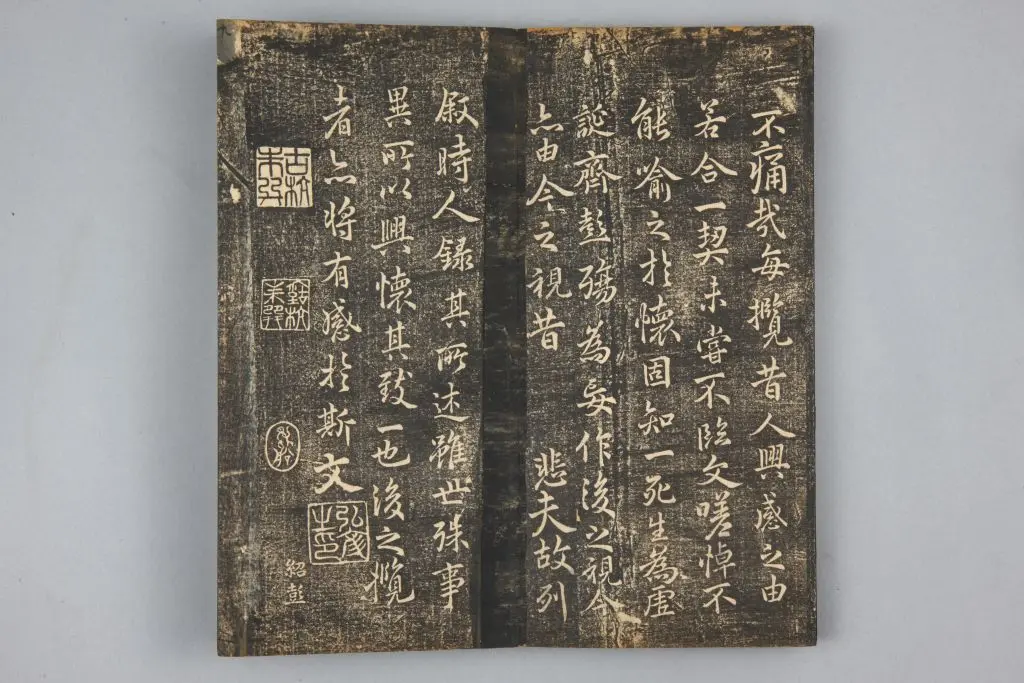 不痛哉每攬昔人興感之由
若合一契未嘗不臨文嗟悼不
能喻之於懷固知一死生為虛
誕齊彭殤為妄作後之視今
亦由今之視昔 悲夫故列
叙時人錄其所述雖世殊事
異所以興懷其致一也後之攬
者亦将有感於斯文
紹彭